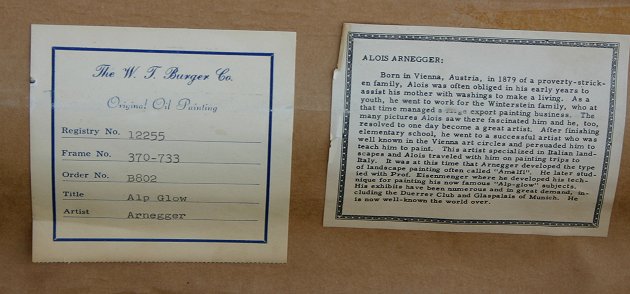 The W. T. Burger Co.
Original Oil Painting
Registry No. 12255
Frame No. 370-733
Order No. B802
Title Alp Glow
Artist Arnegger
ALOIS ARNEGGER:
Born in Vienna, Austria, in 1879 of a proverty-strick-
en family, Alois was often obliged in his early years to
assist his mother with washings to make a living. As a
youth, he went to work for the Winterstein family, who at
that time managed a export painting business. The
many pictures Alois saw there fascinated him and he, too,
resolved to one day become a great artist. After finishing
elementary school, he went to a successful artist who was
well known in the Vienna art circles and persuaded him to
teach him to paint. This artist specialized in Italian land-
scapes and Alois traveled with him on painting trips to
Italy. It was at this time that Arnegger developed the type
of landscape painting often called "Amalfi". He later stud-
ied with Prof. Eisenmenger where he developed his tech-
nique for painting his now famous "Alp-glow" subjects.
His exhibits have been numerous and in great demand, in-
cluding the Duerer Club and Glaspalais of Munich. He
is now well-known the world over.